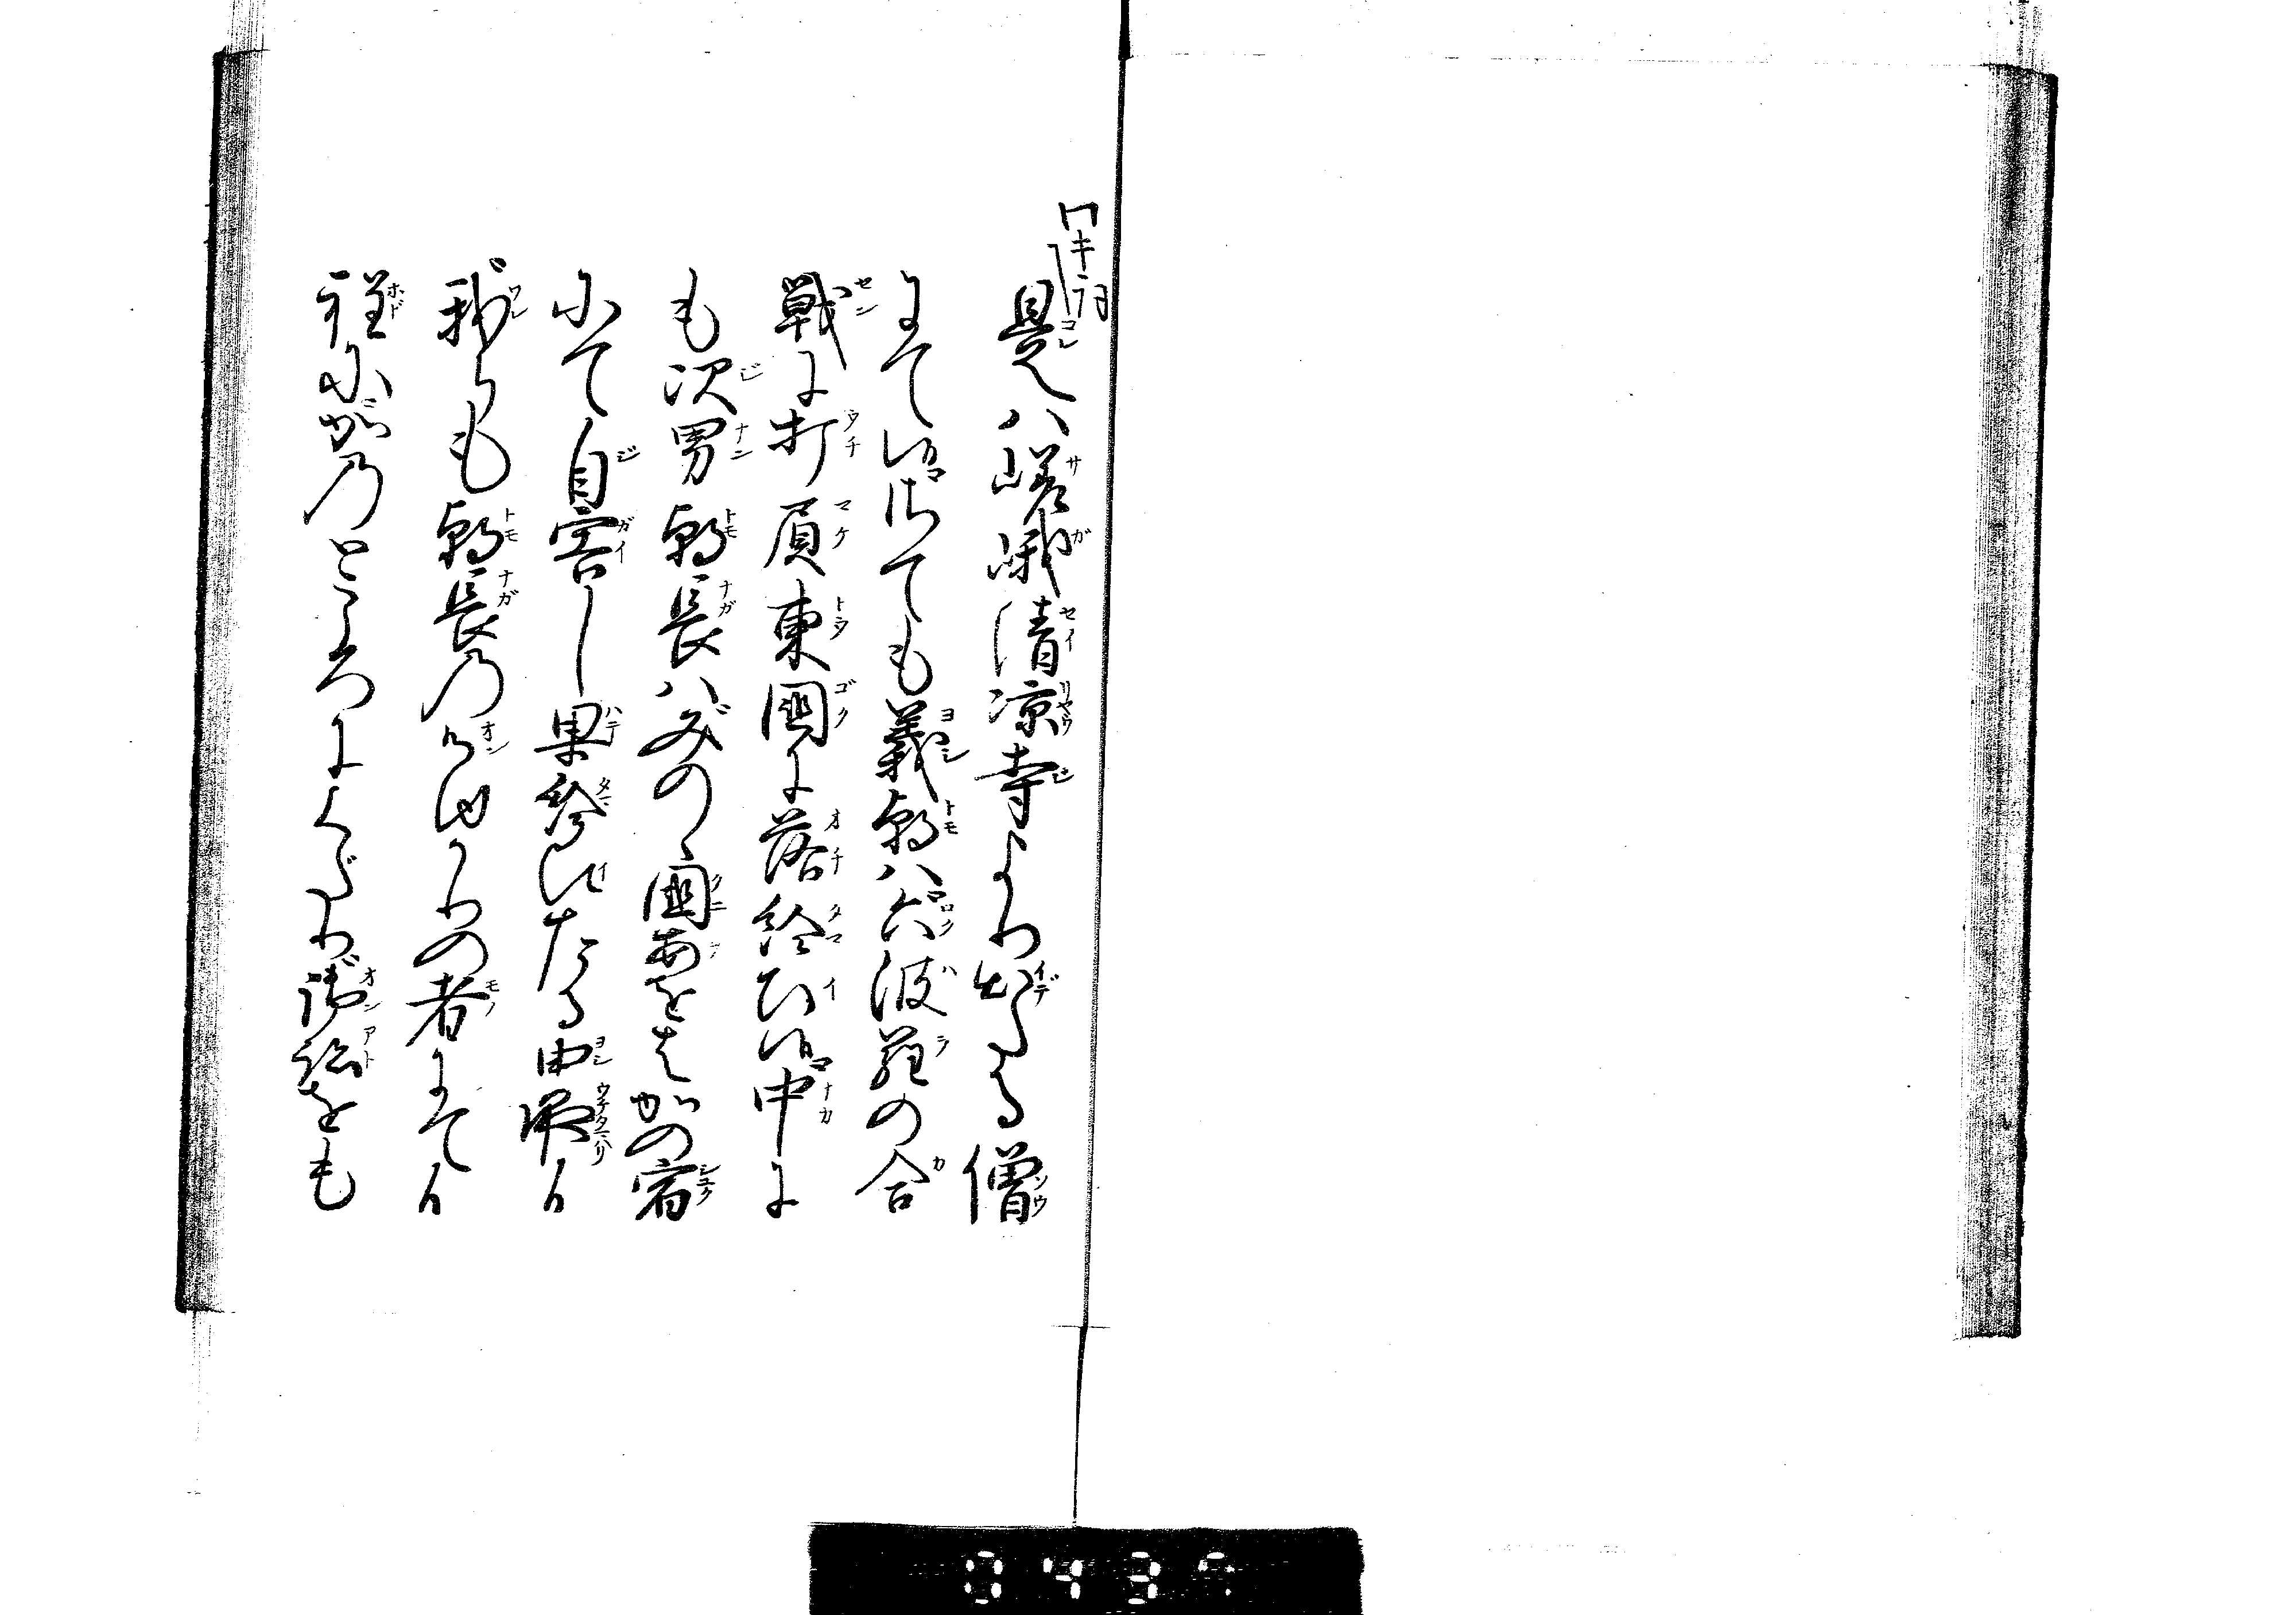 ワキ詞
是ハ嵯峨清凉寺より出たる僧
にて候さても義朝ハ六波羅の合
戦に打負東國に落給ひ候中に
も次男朝長ハみのゝ國あをはかの宿
にて自害し果給ひたる由承り
我らも朝長の御ゆかりの者にて候
程にかのところによくだり御跡をも